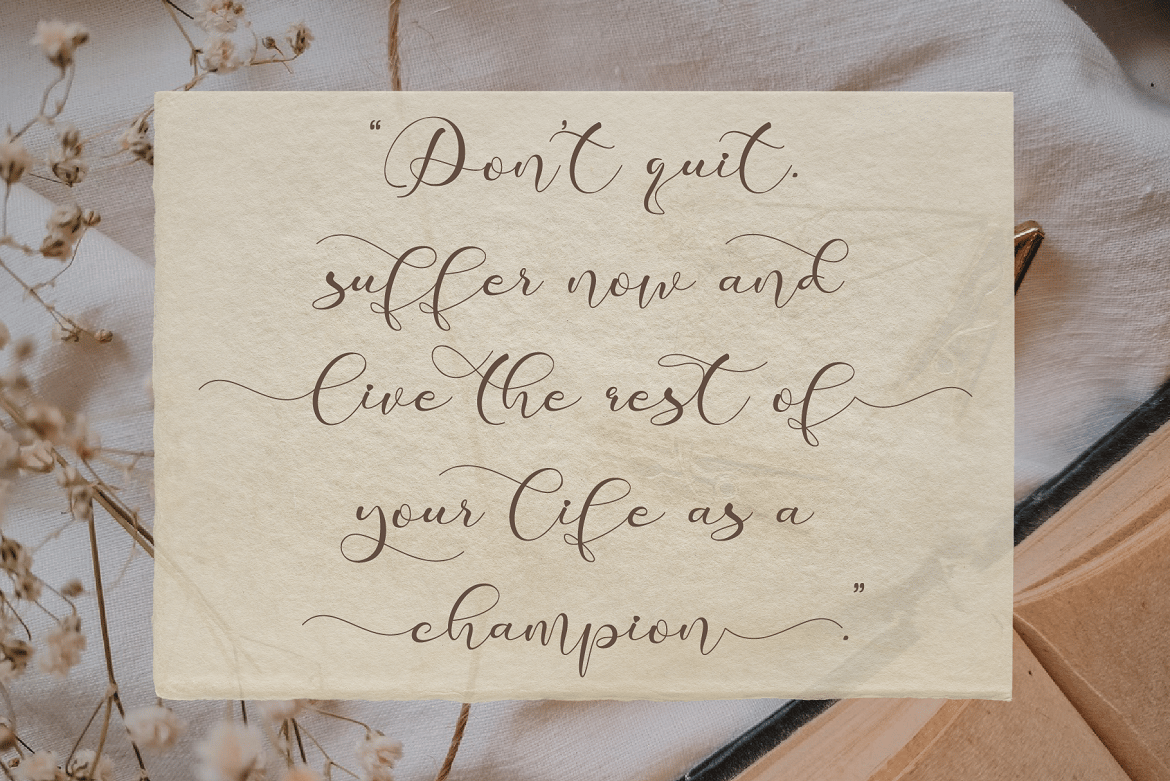 “Don't quit.
suffer now and
live the rest of
your life as a
champion.”